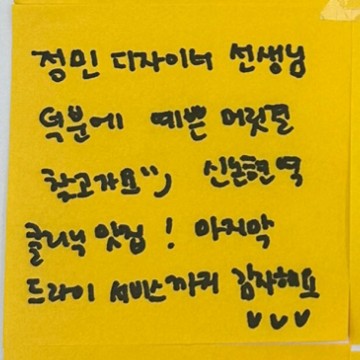 정민 디자이너 선생님
덕분에 예쁜 머릿결
찾고가요^^, 신논현역
클리닉 맛집! 마지막
드라이 서비스까지 감사해요
♡♡♡